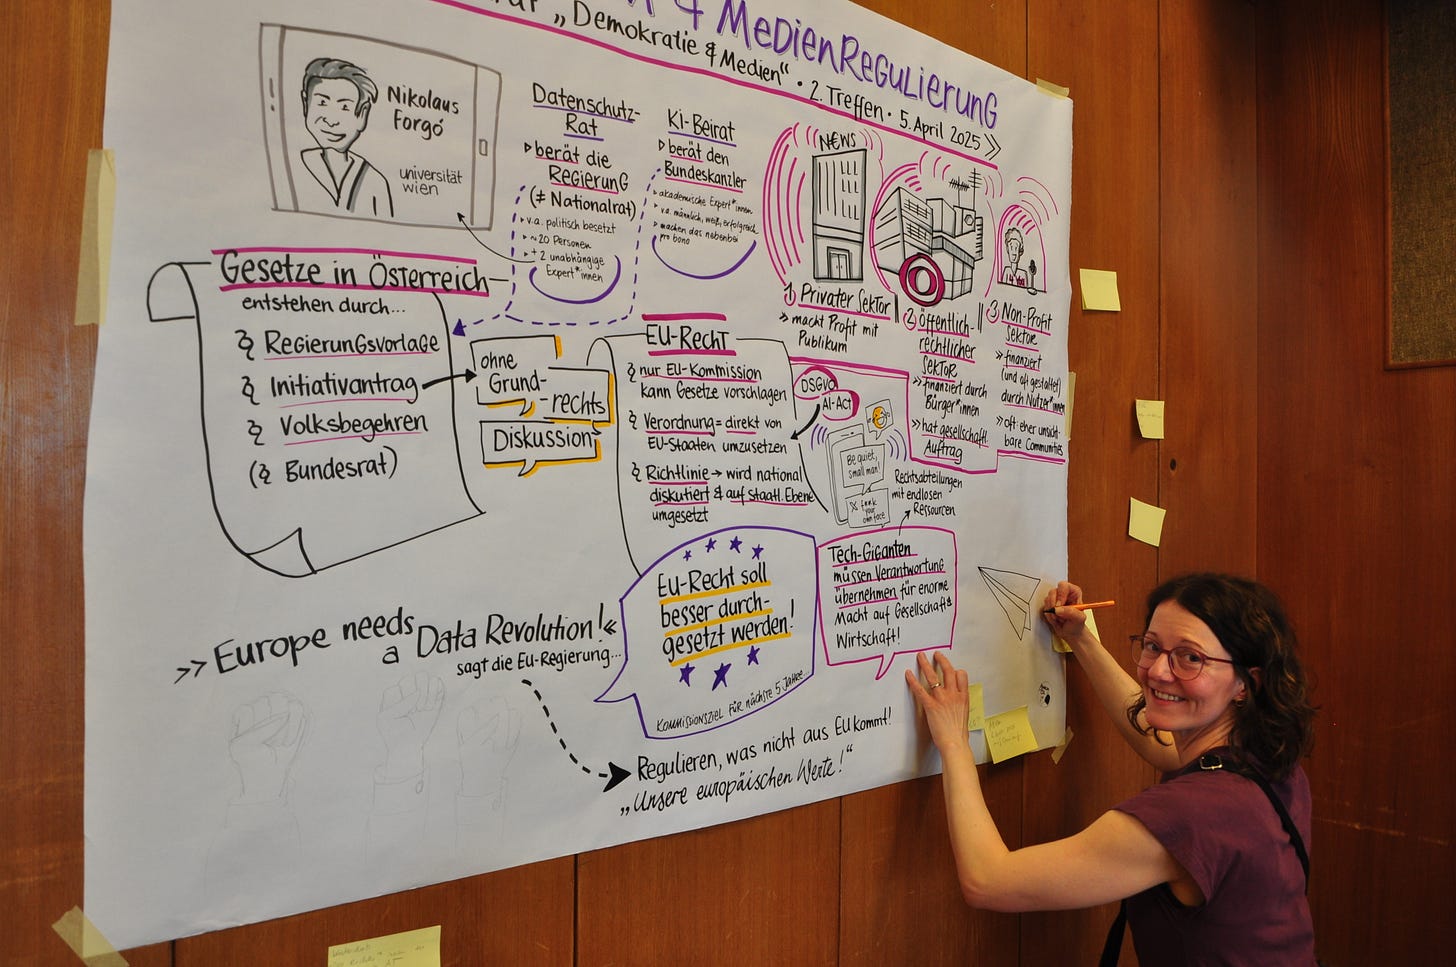 & MEDIENREGULIERUNG
„Demokratie & Medien“ · 2. Treffen · 5. April 2025 »
Nikolaus
Forgó
universität
wien
Datenschutz-
Rat
▷ berät die
REGIERUNG
(≠ Nationalrat)
▸ v.a. politisch besetzt
▸ ~20 Personen
▸ + 2 unabhängige
Expert*innen
KI-Beirat
▷ berät den
Bundeskanzler
▸ akademische Expert*innen
▸ v.a. männlich, weiß, erfolgreich
▸ machen das nebenbei
pro bono
N€WS
1) Privater Sektor
» macht Profit mit
Publikum
2) öffentlich-
rechtlicher
Sektor
» finanziert durch
Bürger*innen
» hat gesellschaftl.
Auftrag
3) Non-Profit
Sektor
» finanziert
(und oft gestaltet)
durch Nutzer*innen
» oft eher unsicht-
bare Communities
Gesetze in Österreich
entstehen durch...
§ REGIERUNGSVORLAGE
§ Initiativantrag
§ Volksbegehren
(§ Bundesrat)
ohne
Grund-
rechts
Diskussion
EU-RECHT
§ nur EU-Kommission
kann Gesetze vorschlagen
§ Verordnung = direkt von
EU-Staaten umzusetzen
§ Richtlinie → wird national
diskutiert & auf staatl. Ebene
umgesetzt
DSGVO
AI-Act
Be quiet,
small man!
X
your
own face
Rechtsabteilungen
mit endlosen
Ressourcen
Tech-Giganten
müssen Verantwortung
übernehmen für enorme
Macht auf Gesellschaft &
Wirtschaft!
Eu-Recht soll
besser durch-
gesetzt werden!
KOMMISSIONSZIEL FÜR NÄCHSTE 5 JAHRE
»Europe needs
a Data Revolution!«
sagt die EU-Regierung...
Regulieren, was nicht aus EU kommt!
„Unsere europäischen Werte!“